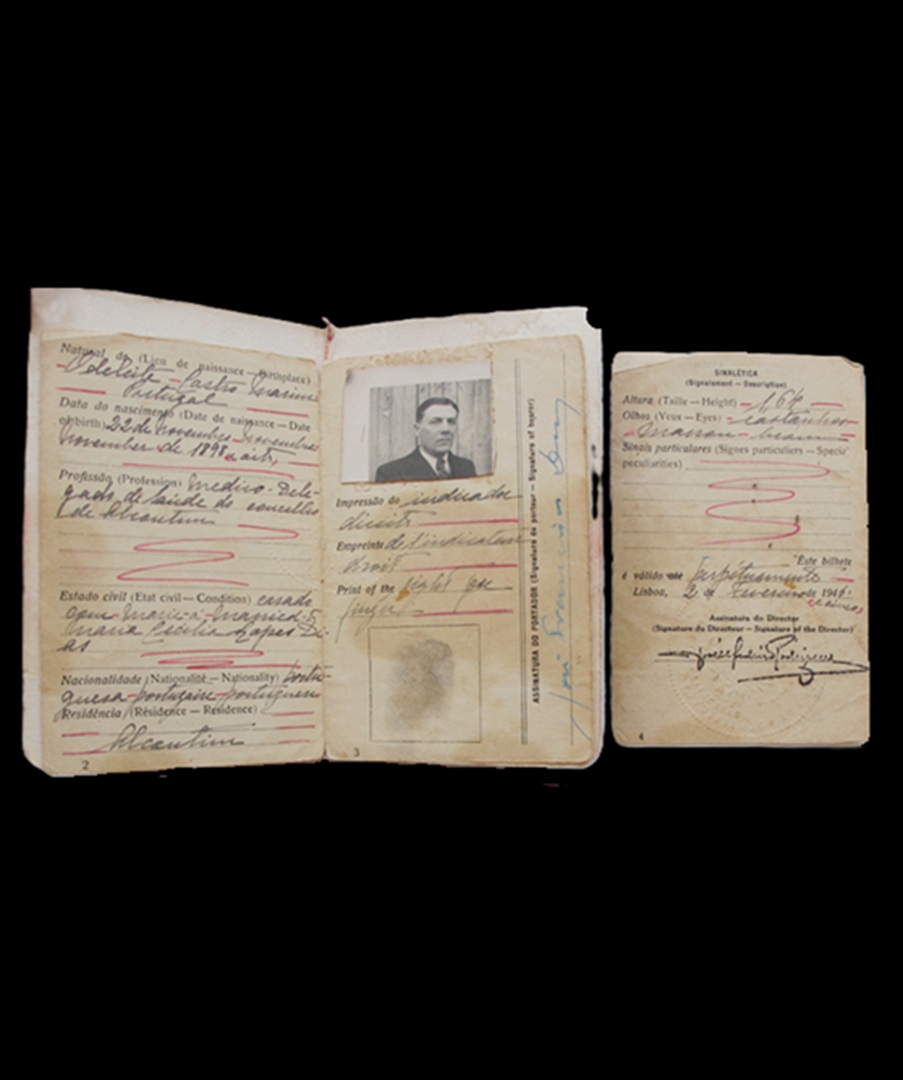 Natural de (Lieu de naissance — Birthplace)
Odeleite - Castro Marim
Portugal
Data do nascimento (Date de naissance — Date
of birth) 22 de novembro - novembre
November de 1898
Profissão (Profession) medico - Dele-
gado de saude do concelho
de Alcoutim
Estado civil (État civil — Condition) casado
com - marié à - married
Maria Cecilia Lopes Di-
as
Nacionalidade (Nationalité — Nationality) portu-
guesa - portugaise - portuguese
Residência (Résidence — Residence)
Alcoutim
2
Impressão do indicador
direito
Empreinte de l'indicateur
droit
Print of the right fore
finger
3
ASSINATURA DO PORTADOR (Signature du porteur — Signature of bearer)
José Francisco Dias
SINALÉTICA
(Signalement — Description)
Altura (Taille — Height) 1,64
Olhos (Yeux — Eyes) castanhos
marron - brown
Sinais particulares (Signes particuliers — Specir
peculiarities)
Este bilhete
é válido até perpétuamente
Lisboa, 2 de Fevereiro de 194
Assinatura do Director
(Signature du Directeur — Signature of the Director)
4